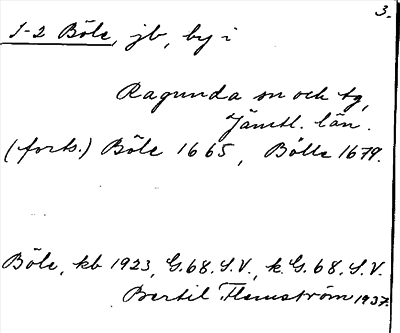 3.
1-2 Böle, jb, by i
Ragunda sn och tg,
Jämtl. län.
(forts.) Böle 1665, Bölle 1679.
Böle, kb 1923, G.68.S.V., k.G.68.S.V.
Bertil Flemström 1937.